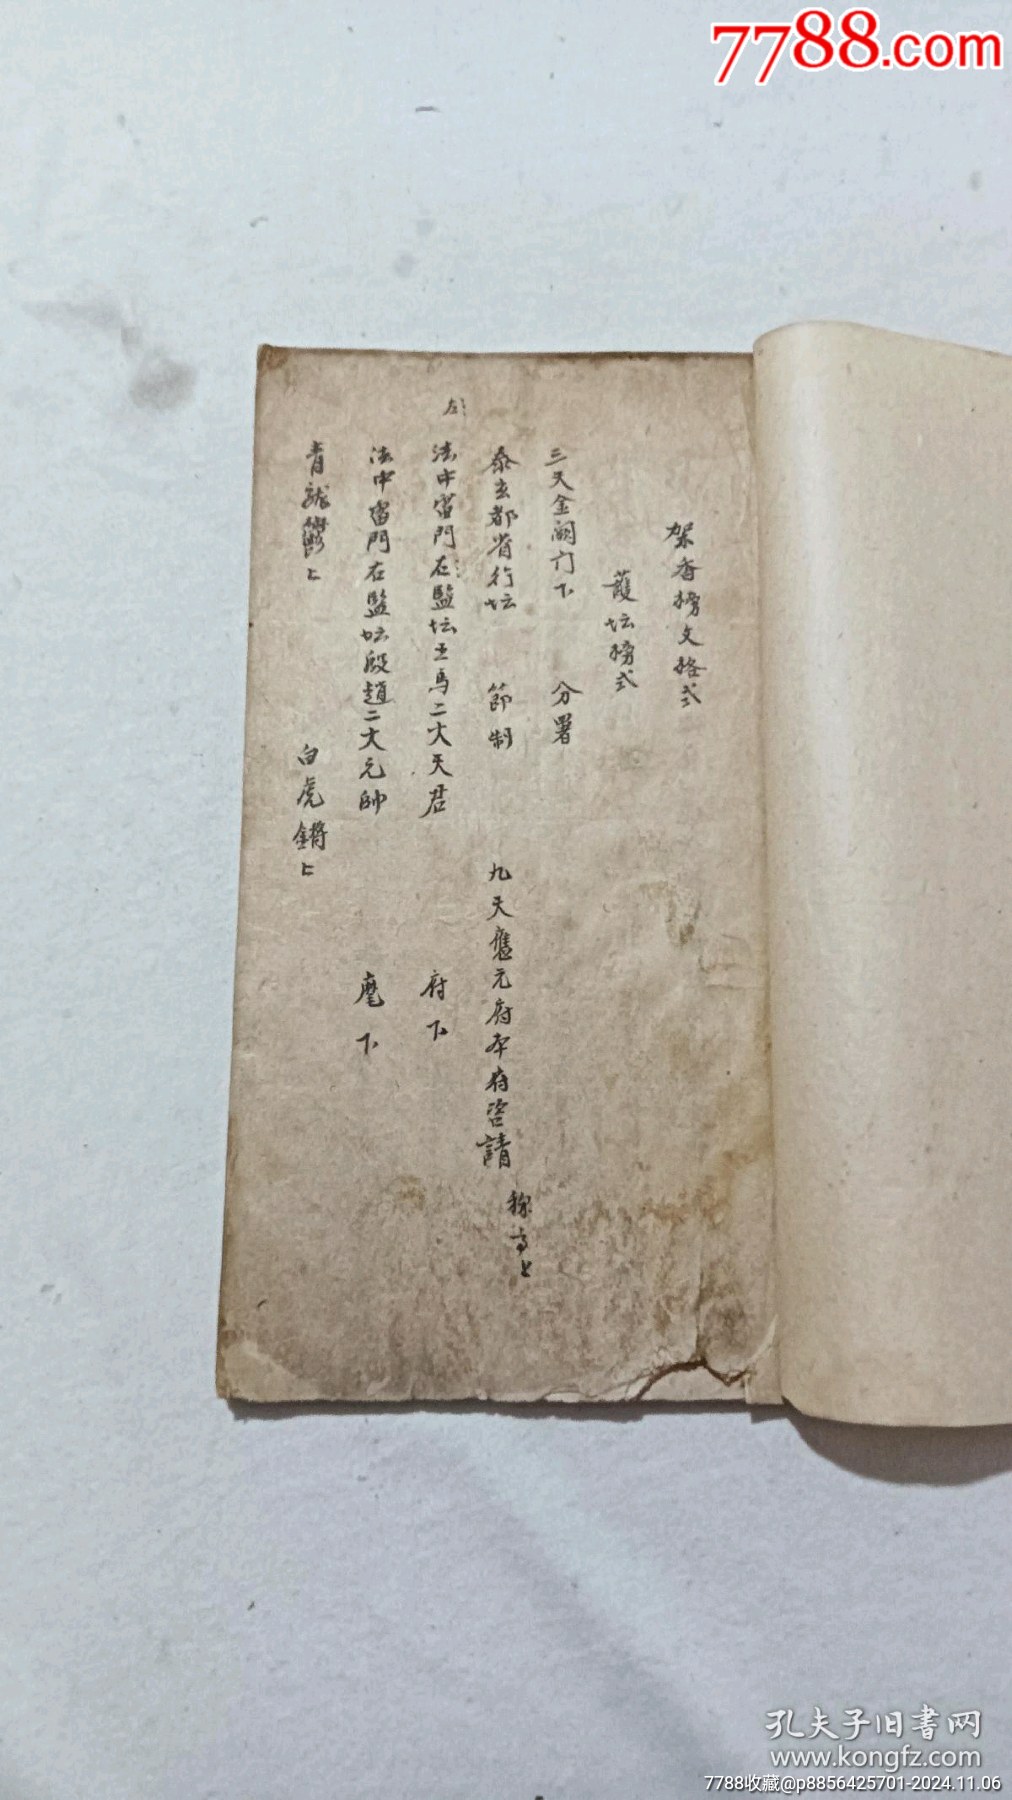 7788.com
架香榜文格式
護坛榜式
三天金闕门下 分署
泰玄都省行坛 節制 九天應元府本府咨請 称高上
左
法中雷門在監坛王馬二大天君 府下
法中雷門右監坛殷趙二大元帥 麾下
青龍 白虎
孔夫子旧書网
www.kongfz.com
7788收藏@p8856425701-2024.11.06